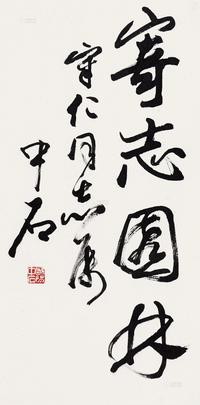 寄志园林
守仁同志属
中石